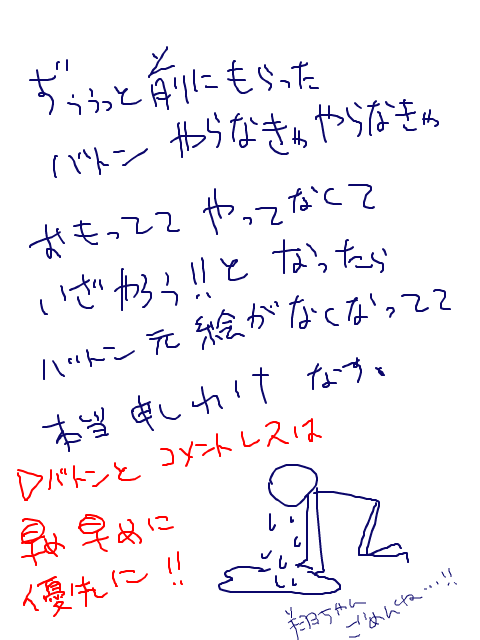 ずぅぅっと前にもらった
バトン やらなきゃやらなきゃ
おもってて やってなくて
いざやろう!!と なったら
バトン元絵がなくなってて
本当申しわけ なす。
▷バトンと コメントレスは
早め早めに
優先に!!
翔ちゃん
ごめんね…!!